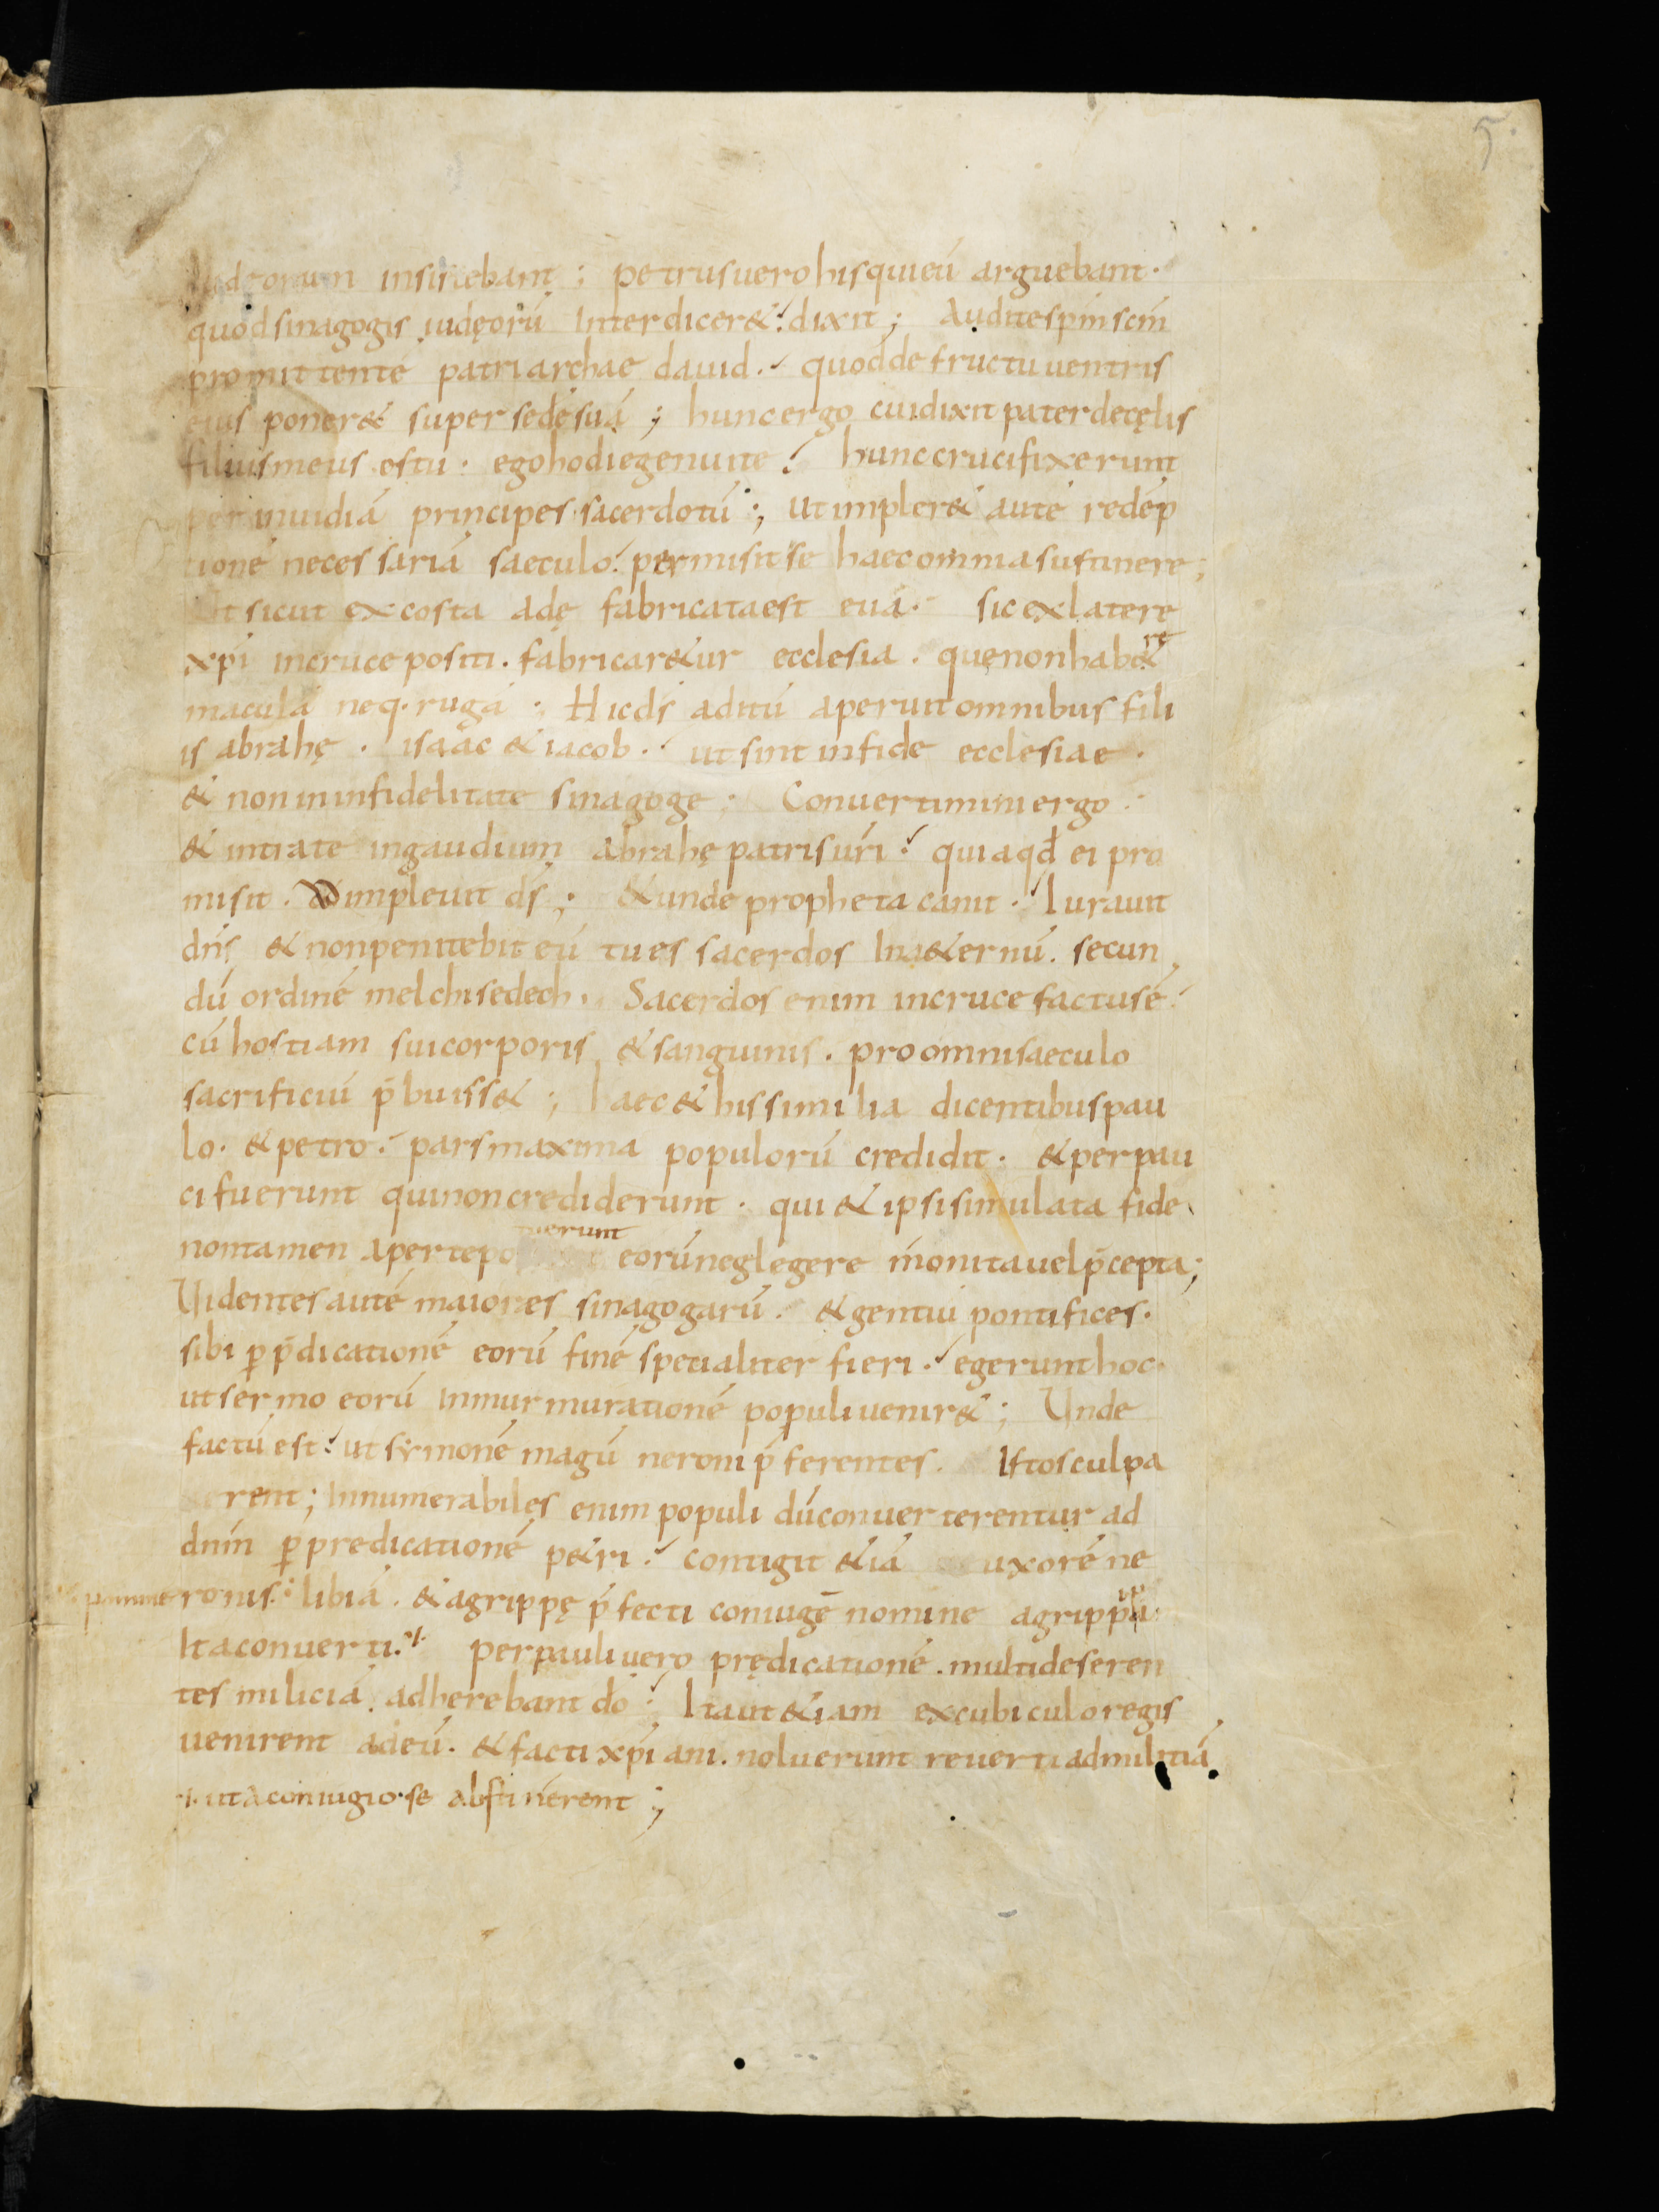 5
iudeorum insistebant ; petrus uero his qui eū arguebant ·
quod sinagogis iudęorū Interdicer& ; dixit ; Audite sp̄m sc̄m
promittentē patriarchae dauid · quod de fructu uentris
eius poner& super sedē suā ; hunc ergo cui dixit pater de cęlis
filius meus es tu · ego hodie genui te ; hunc crucifixerunt
per inuidiā principes sacerdotū ; ut impler& autē redēp
tionē necessariā saeculo ; permisit se haec omnia sustinere ;
ut sicut ex costa adę fabricata est eua · sic ex latere
xp̄i in cruce positi · fabricar&ur ecclesia · quę non hab&
rę
maculā neq· rugā · Hic d̄s aditū aperuit omnibus fili
is abrahę · isaac & iacob · ut sint in fide ecclesiae ·
& non in infidelitate sinagoge · Conuertimini ergo ·
& intrate in gaudium abrahę patris ur̄i · quia qd̄ ei pro
misit · Adimpleuit d̄s ; & unde propheta canit · Iurauit
dn̄s & non penitebit eū tu es sacerdos In a&ernū · secun
dū ordinē melchisedech · Sacerdos enim in cruce factus ē
cū hostiam sui corporis & sanguinis · pro omni saeculo
sacrificiū p̄buiss& ; haec & his similia dicentibus pau
lo · & petro · pars maxima populorū credidit · & perpau
ci fuerunt qui non crediderunt · qui & ipsi simulata fide
nuerunt
non tamen aperte po eorū neglegere monita uel p̄cepta ;
Videntes autē maiores sinagogarū · & gentiū pontifices ·
sibi ꝑ p̄dicationē eorū finē spetialiter fieri · egerunt hoc ·
ut sermo eorū In murmurationē populi uenir& ; Unde
factū est · ut symonē magū neroni p̄ferentes · Istos culpa
rent ; Innumerabiles enim populi dū conuerterentur ad
dn̄m ꝑ predicationē p&ri · contigit &iā uxorē ne
ronis · libiā · & agrippę p̄fecti coniugē nomine agrippā
Ita conuerti · per pauli uero prędicationē · multi deseren
tes miliciā · adherebant dō · Ita ut &iam ex cubiculo regis
uenirent ad eū · & facti xp̄iani · noluerunt reuerti ad militiā
ut a coniugio se abstinerent ;